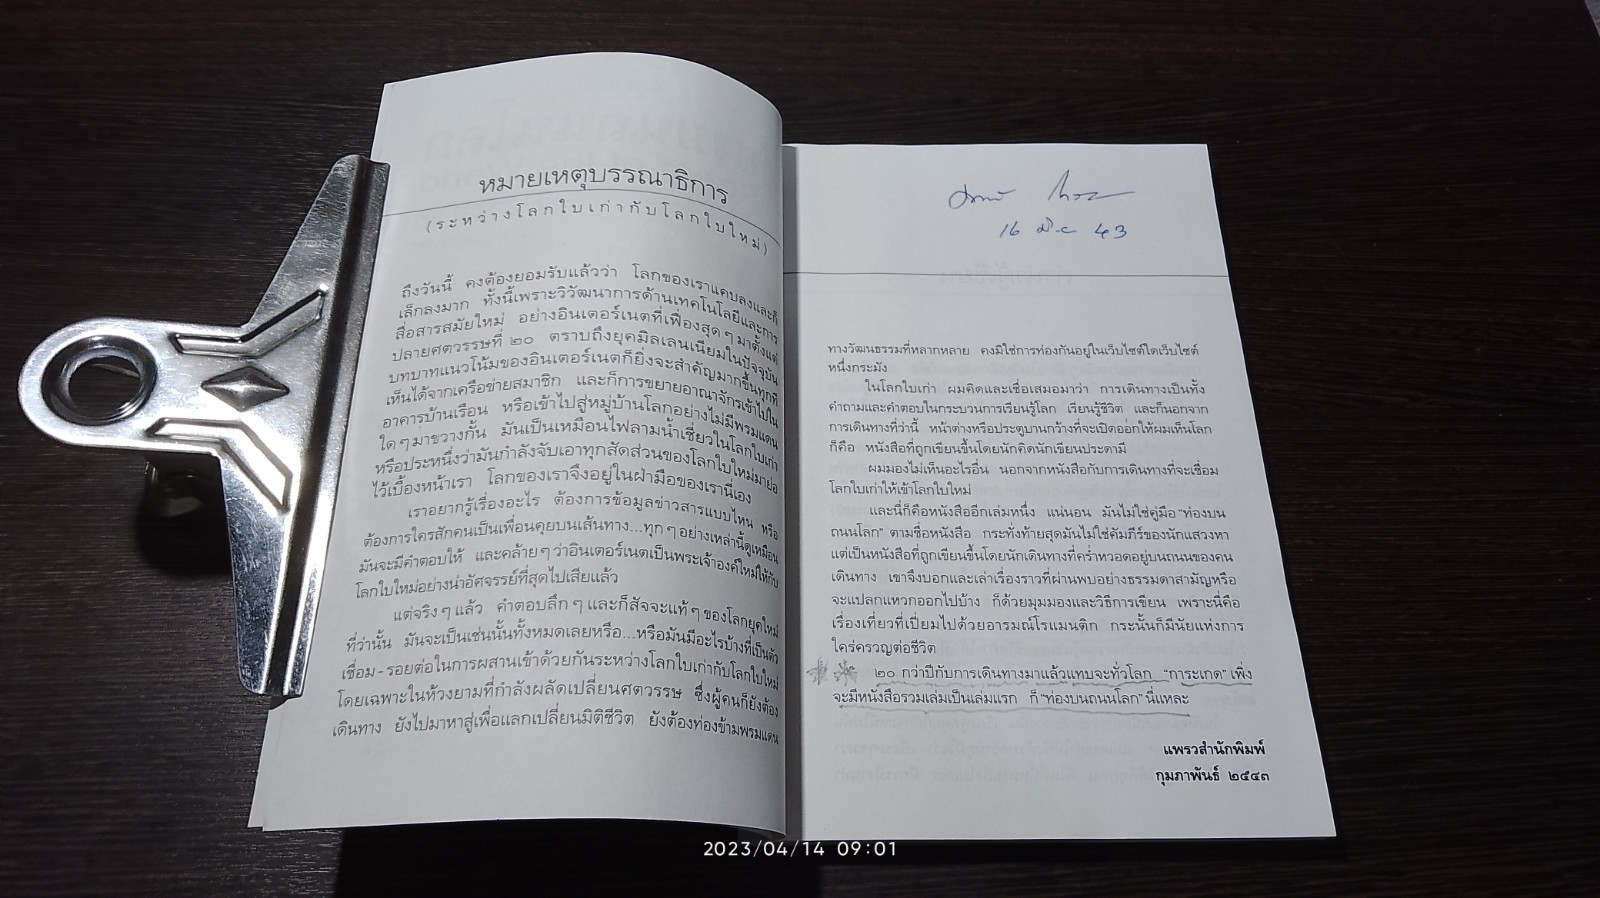 หมายเหตุบรรณาธิการ
(ระหว่างโลกใบเก่ากับโลกใบใหม่)
ถึงวันนี้ คงต้องยอมรับแล้วว่า โลกของเราแคบลงและก็
เล็กลงมาก ทั้งนี้เพราะวิวัฒนาการด้านเทคโนโลยีและการ
สื่อสารสมัยใหม่ อย่างอินเตอร์เนตที่เฟื่องสุดๆ มาตั้งแต่
ปลายศตวรรษที่ ๒๐ ตราบถึงยุคมิลเลนเนียมในปัจจุบัน
บทบาทแนวโน้มของอินเตอร์เนตก็ยิ่งจะสำคัญมากขึ้นทุกที
เห็นได้จากเครือข่ายสมาชิก และก็การขยายอาณาจักรเข้าไปใน
อาคารบ้านเรือน หรือเข้าไปสู่หมู่บ้านโลกอย่างไม่มีพรมแดน
ใดๆ มาขวางกั้น มันเป็นเหมือนไฟลามน้ำเชี่ยวในโลกใบเก่า
หรือประหนึ่งว่ามันกำลังจับเอาทุกสัดส่วนของโลกใบใหม่มาย่อ
ไว้เบื้องหน้าเรา โลกของเราจึงอยู่ในฝ่ามือของเรานี่เอง
เราอยากรู้เรื่องอะไร ต้องการข้อมูลข่าวสารแบบไหน หรือ
ต้องการใครสักคนเป็นเพื่อนคุยบนเส้นทาง...ทุกๆ อย่างเหล่านี้ดูเหมือน
มันจะมีคำตอบให้ และคล้ายๆ ว่าอินเตอร์เนตเป็นพระเจ้าองค์ใหม่ให้กับ
โลกใบใหม่อย่างน่าอัศจรรย์ที่สุดไปเสียแล้ว
แต่จริงๆ แล้ว คำตอบลึกๆ และก็สัจจะแท้ๆ ของโลกยุคใหม่
ที่ว่านั้น มันจะเป็นเช่นนั้นทั้งหมดเลยหรือ...หรือมันมีอะไรบ้างที่เป็นตัว
เชื่อม-รอยต่อในการผสานเข้าด้วยกันระหว่างโลกใบเก่ากับโลกใบใหม่
โดยเฉพาะในห้วงยามที่กำลังผลัดเปลี่ยนศตวรรษ ซึ่งผู้คนก็ยังต้อง
เดินทาง ยังไปมาหาสู่เพื่อแลกเปลี่ยนมิติชีวิต ยังต้องท่องข้ามพรมแดน
16 มี.ค 43
ทางวัฒนธรรมที่หลากหลาย คงมิใช่การท่องกันอยู่ในเว็บไซต์ใดเว็บไซต์
หนึ่งกระมัง
ในโลกใบเก่า ผมคิดและเชื่อเสมอมาว่า การเดินทางเป็นทั้ง
คำถามและคำตอบในกระบวนการเรียนรู้โลก เรียนรู้ชีวิต และก็นอกจาก
การเดินทางที่ว่านี้ หน้าต่างหรือประตูบานกว้างที่จะเปิดออกให้ผมเห็นโลก
ก็คือ หนังสือที่ถูกเขียนขึ้นโดยนักคิดนักเขียนประดามี
ผมมองไม่เห็นอะไรอื่น นอกจากหนังสือกับการเดินทางที่จะเชื่อม
โลกใบเก่าให้เข้าโลกใบใหม่
และนี่ก็คือหนังสืออีกเล่มหนึ่ง แน่นอน มันไม่ใช่คู่มือ “ท่องบน
ถนนโลก” ตามชื่อหนังสือ กระทั่งท้ายสุดมันไม่ใช่คัมภีร์ของนักแสวงหา
แต่เป็นหนังสือที่ถูกเขียนขึ้นโดยนักเดินทางที่คร่ำหวอดอยู่บนถนนของคน
เดินทาง เขาจึงบอกและเล่าเรื่องราวที่ผ่านพบอย่างธรรมดาสามัญหรือ
จะแปลกแหวกออกไปบ้าง ก็ด้วยมุมมองและวิธีการเขียน เพราะนี่คือ
เรื่องเที่ยวที่เปี่ยมไปด้วยอารมณ์โรแมนติก กระนั้นก็มีนัยแห่งการ
ใคร่ครวญต่อชีวิต
๒๐ กว่าปีกับการเดินทางมาแล้วแทบจะทั่วโลก “การะเกด” เพิ่ง
จะมีหนังสือรวมเล่มเป็นเล่มแรก ก็ “ท่องบนถนนโลก” นี่แหละ
แพรวสำนักพิมพ์
กุมภาพันธ์ ๒๕๔๓
2023/04/14 09:01